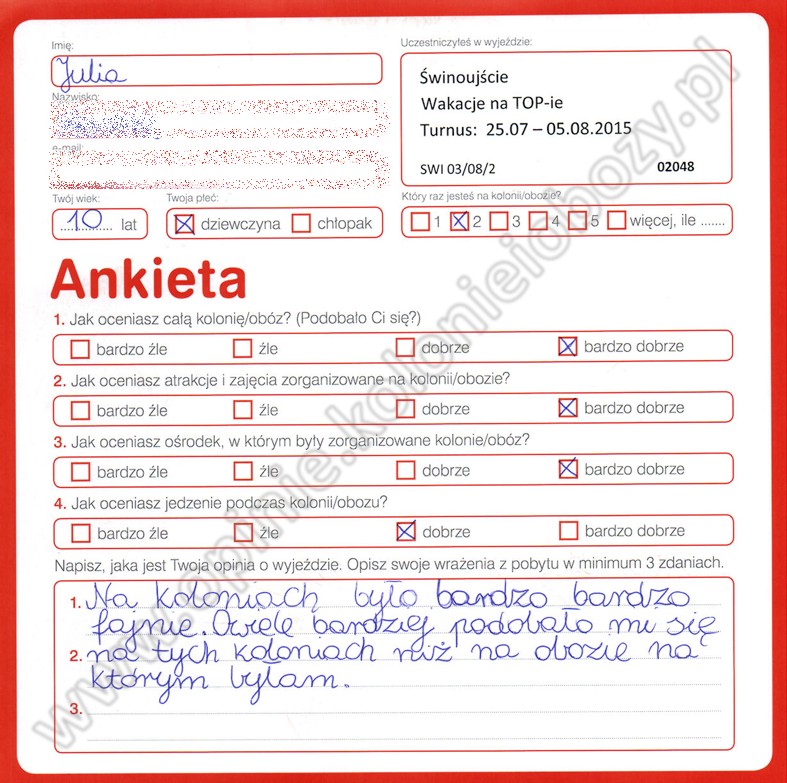 Imię:
Julia
Nazwisko:
e-mail:
Twój wiek:
10 lat
Twoja płeć:
dziewczyna chłopak
Uczestniczyłeś w wyjeździe:
Świnoujście
Wakacje na TOP-ie
Turnus: 25.07 – 05.08.2015
SWI 03/08/2 02048
Który raz jesteś na kolonii/obozie?
1 2 3 4 5 więcej, ile .......
Ankieta
1. Jak oceniasz całą kolonię/obóz? (Podobało Ci się?)
bardzo źle źle dobrze bardzo dobrze
2. Jak oceniasz atrakcje i zajęcia zorganizowane na kolonii/obozie?
bardzo źle źle dobrze bardzo dobrze
3. Jak oceniasz ośrodek, w którym były zorganizowane kolonie/obóz?
bardzo źle źle dobrze bardzo dobrze
4. Jak oceniasz jedzenie podczas kolonii/obozu?
bardzo źle źle dobrze bardzo dobrze
Napisz, jaka jest Twoja opinia o wyjeździe. Opisz swoje wrażenia z pobytu w minimum 3 zdaniach.
1. Na koloniach było bardzo bardzo
fajnie. O wiele bardziej podobało mi się
2. na tych koloniach niż na obozie na
którym byłam.
3.
www.opinie.kolonieiobozy.pl